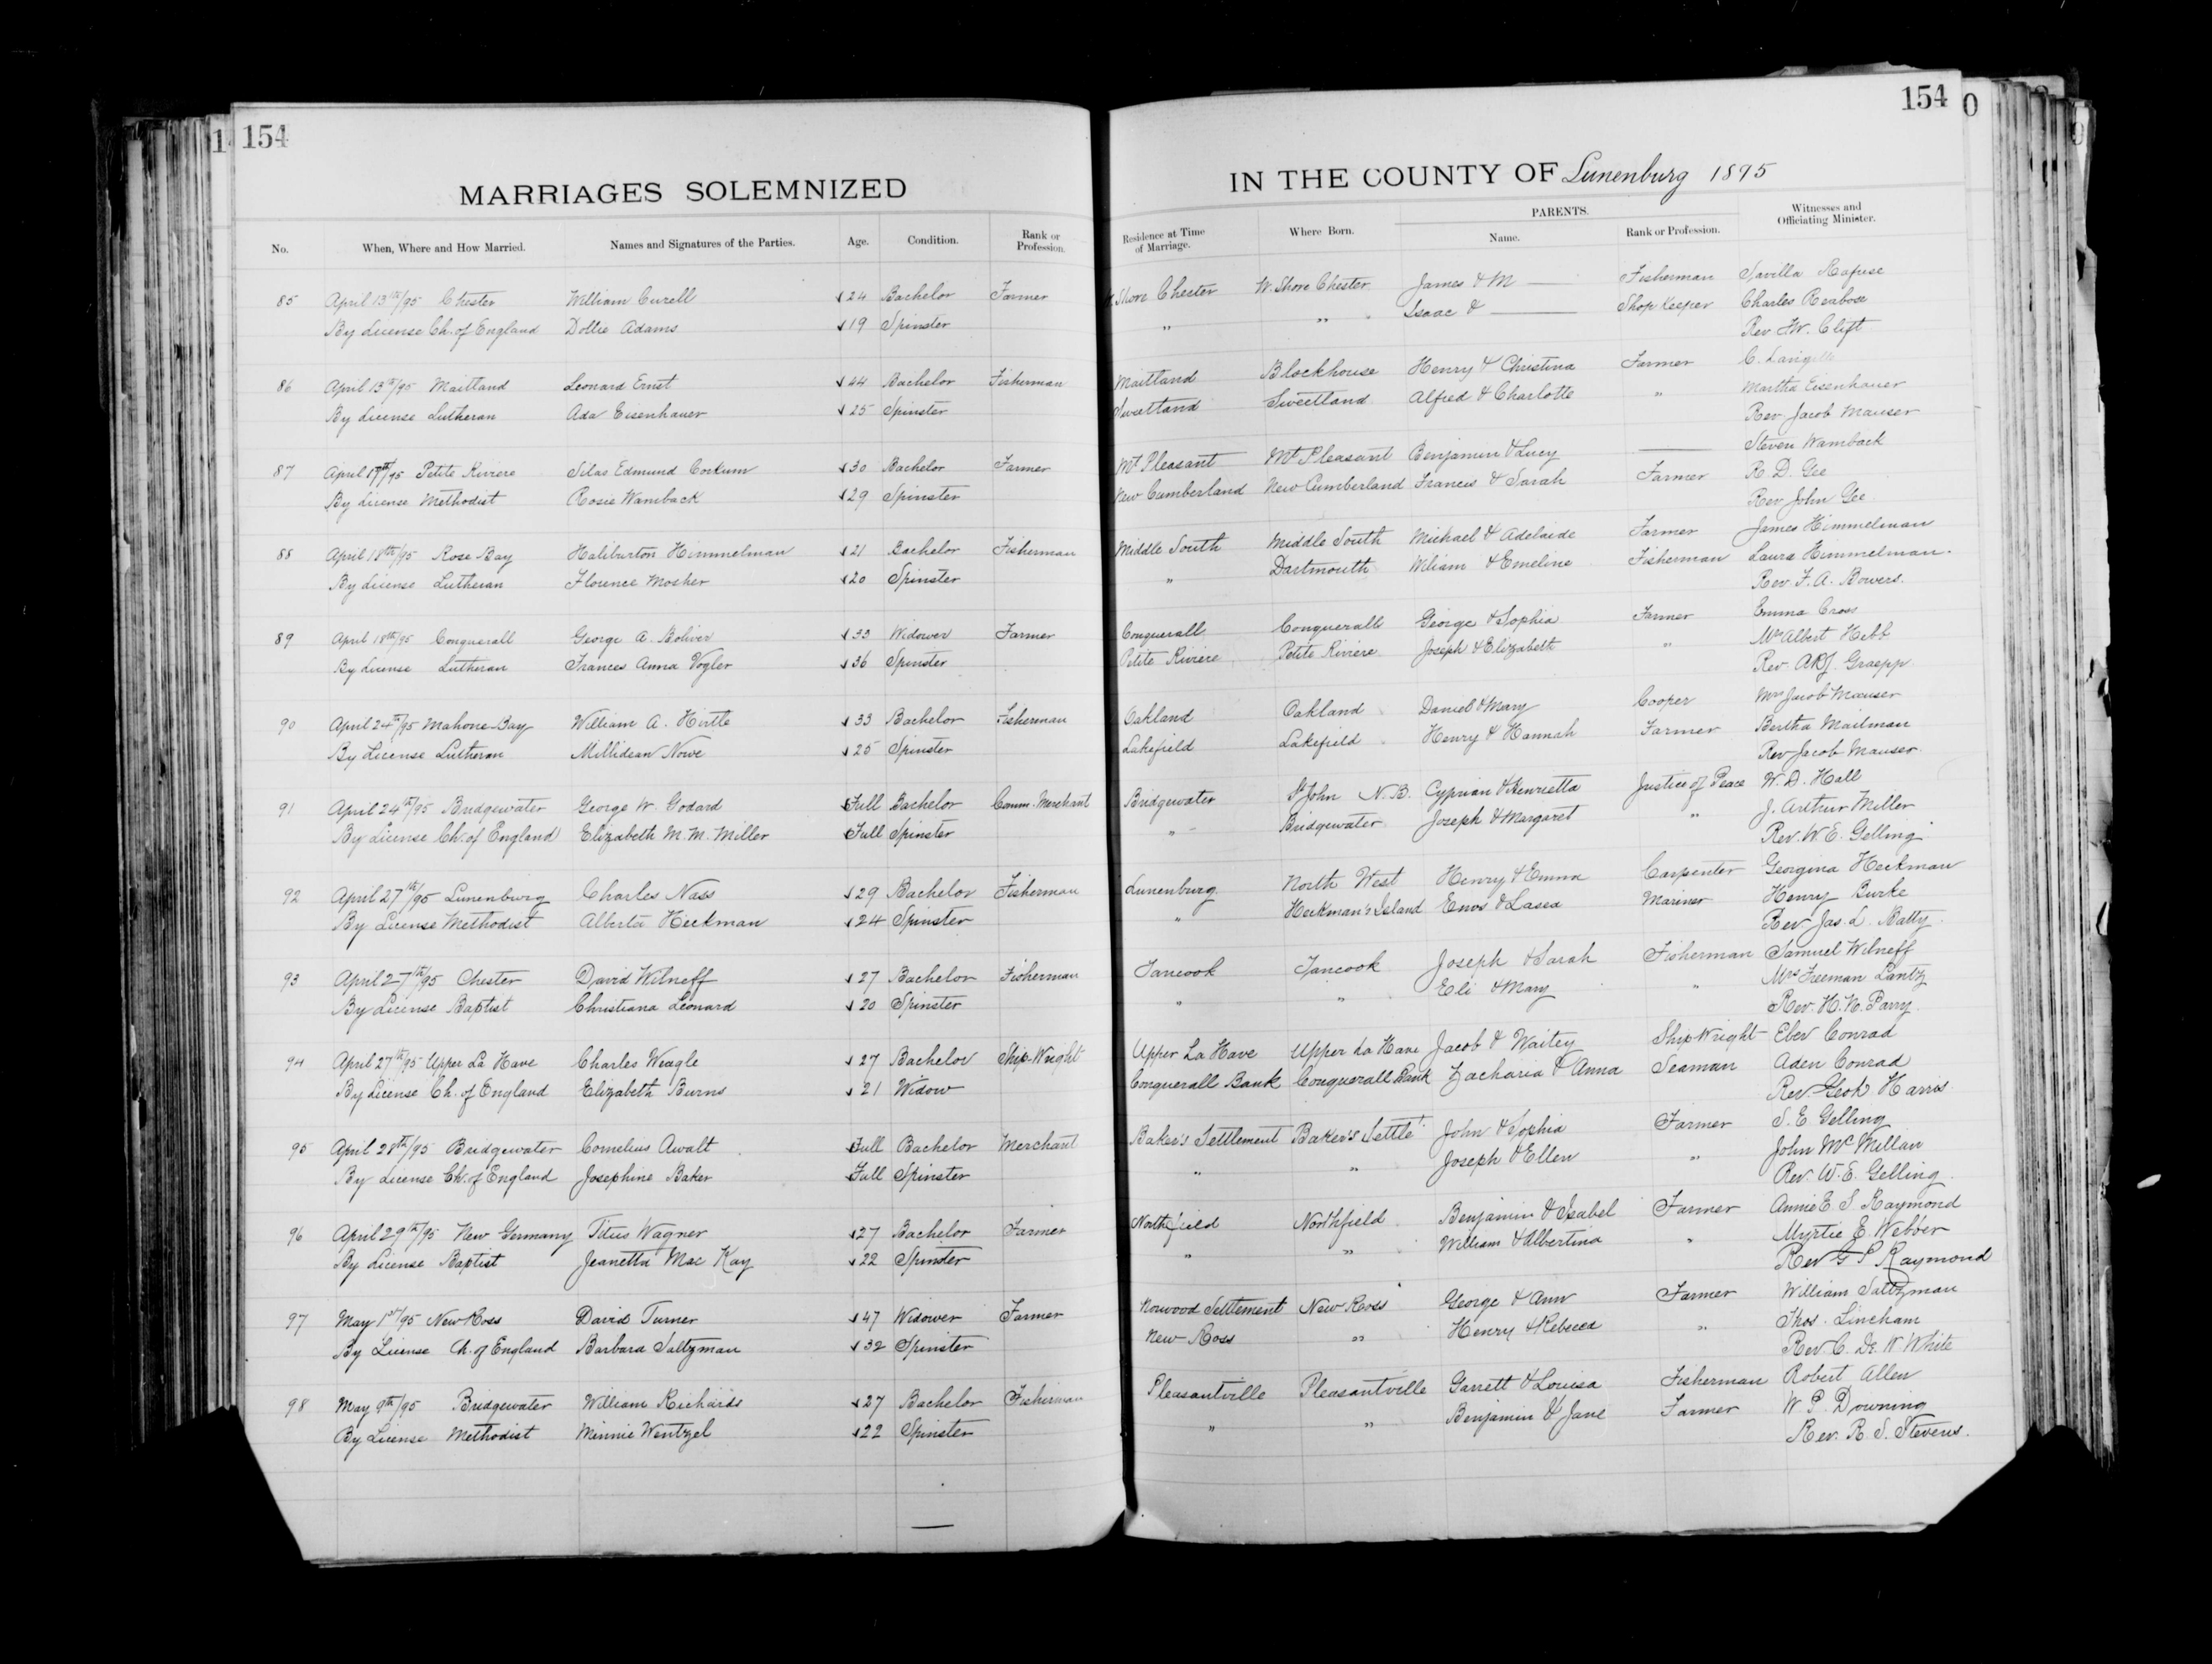 154
MARRIAGES SOLEMNIZED
No. When, Where and How Married. Names and Signatures of the Parties. Age. Condition. Rank or Profession.
85 April 13th/95 Chester William Curell 24 Bachelor Farmer
By License Ch. of England Dollie Adams 19 Spinster
86 April 13th/95 Maitland Leonard Ernst 44 Bachelor Fisherman
By License Lutheran Ada Eisenhauer 25 Spinster
87 April 17th/95 Petite Riviere Silas Edmund Corkum 30 Bachelor Farmer
By License Methodist Rosie Wamback 29 Spinster
88 April 18th/95 Rose Bay Haliburton Himmelman 21 Bachelor Fisherman
By License Lutheran Florence Mosher 20 Spinster
89 April 18th/95 Conquerall George A. Boliver 33 Widower Farmer
By License Lutheran Frances Anna Vogler 36 Spinster
90 April 24th/95 Mahone Bay William A. Hirtle 33 Bachelor Fisherman
By License Lutheran Millidean Nowe 25 Spinster
91 April 24th/95 Bridgewater George W. Godard Full Bachelor Comm. Merchant
By License Ch. of England Elizabeth M. M. Miller Full Spinster
92 April 27th/95 Lunenburg Charles Nass 29 Bachelor Fisherman
By License Methodist Alberta Heckman 24 Spinster
93 April 27th/95 Chester David Wilneff 27 Bachelor Fisherman
By License Baptist Christiana Leonard 20 Spinster
94 April 27th/95 Upper La Have Charles Weagle 27 Bachelor Ship-Wright
By License Ch. of England Elizabeth Burns 21 Widow
95 April 28th/95 Bridgewater Cornelius Awalt Full Bachelor Merchant
By License Ch. of England Josephine Baker Full Spinster
96 April 29th/95 New Germany Titus Wagner 27 Bachelor Farmer
By License Baptist Jeanetta Mac Kay 22 Spinster
97 May 1st/95 New Ross David Turner 47 Widower Farmer
By License Ch. of England Barbara Saltzman 32 Spinster
98 May 9th/95 Bridgewater William Richards 27 Bachelor Fisherman
By License Methodist Minnie Wentzel 22 Spinster
154
IN THE COUNTY OF Lunenburg 1895
Residence at Time of Marriage. Where Born. PARENTS. Name. Rank or Profession. Witnesses and Officiating Minister.
Shore Chester W. Shore Chester James & M — Fisherman Savilla Rafuse
" " Isaac & — Shop Keeper Charles Reabose
Rev. Clift
Maitland Blockhouse Henry & Christina Farmer C. Langille
Sweetland Sweetland Alfred & Charlotte " Martha Eisenhauer
Rev. Jacob Mauser
Mt Pleasant Mt Pleasant Benjamin & Lucy — Steven Wamback
New Cumberland New Cumberland Francis & Sarah Farmer R. D. Gee
Rev John Gee
Middle South Middle South Michael & Adelaide Farmer James Himmelman
" Dartmouth Wiliam & Emeline Fisherman Laura Himmelman.
Rev. F. A. Bowers.
Conquerall Conquerall George & Sophia Farmer Emma Cross
Petite Riviere Petite Riviere Joseph & Elizabeth " Mrs Albert Hebb
Rev. Graepp
Oakland Oakland Daniel & Mary Cooper Mrs Jacob Mauser
Lakefield Lakefield Henry & Hannah Farmer Bertha Mailman
Rev Jacob Mauser.
Bridgewater St John N. B. Cyprian & Henrietta Justice of Peace W. D. Hall
" Bridgewater Joseph & Margaret " J. Arthur Miller
Rev. W. E. Gelling
Lunenburg North West Henry & Emma Carpenter Georgina Heckman
" Heckman's Island Enos & Lasea Mariner Henry Burke
Rev Jas. L. Batty.
Tancook Tancook Joseph & Sarah Fisherman Samuel Wilneff
" " Eli & Mary " Mrs Freeman Lantz
Rev. H. N. Parry
Upper La Have Upper La Have Jacob & Waitey Ship Wright Eber Conrad
Conquerall Bank Conquerall Bank Zacharia & Anna Seaman Aden Conrad
Rev. Geo. Harris.
Baker's Settlement Baker's Settlet John & Sophia Farmer S. E. Gelling
" " Joseph & Ellen " John McMillan
Rev. W. E. Gelling.
Northfield Northfield Benjamin & Isabel Farmer Annie E. S. Raymond
" " William & Albertina " Myrtie E. Webber
Rev G P Raymond
Norwood Settlement New Ross George & Ann Farmer William Saltzman
New Ross " Henry & Rebecca " Thos. Lincham
Rev. C. De. W. White
Pleasantville Pleasantville Garrett & Louisa Fisherman Robert Allen
" " Benjamin & Jane Farmer W. P. Downing
Rev. R. S. Stevens.